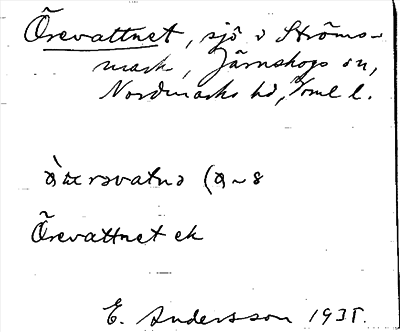 Örevattnet, sjö i Ströms-
mark, Järnskogs sn,
Nordmarks hd, Vrml l.
Örevattnet ek
E. Andersson 1935.